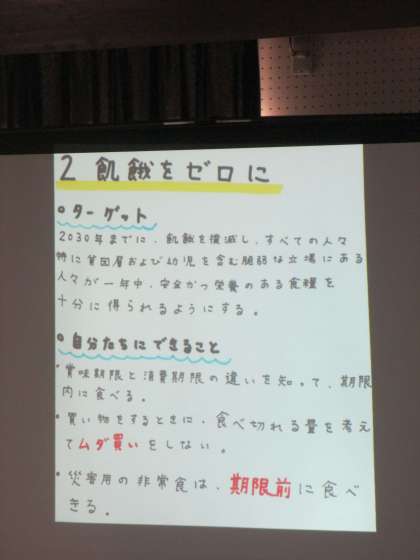 2 飢餓をゼロに
ターゲット
2030年までに、飢餓を撲滅し、すべての人々
特に貧困層および幼児を含む脆弱な立場にある
人々が一年中、安全かつ栄養のある食糧を
十分に得られるようにする。
自分たちにできること
賞味期限と消費期限の違いを知って、期限
内に食べる。
買い物をするときに、食べ切れる量を考え
てムダ買いをしない。
災害用の非常食は、期限前に食べ
きる。